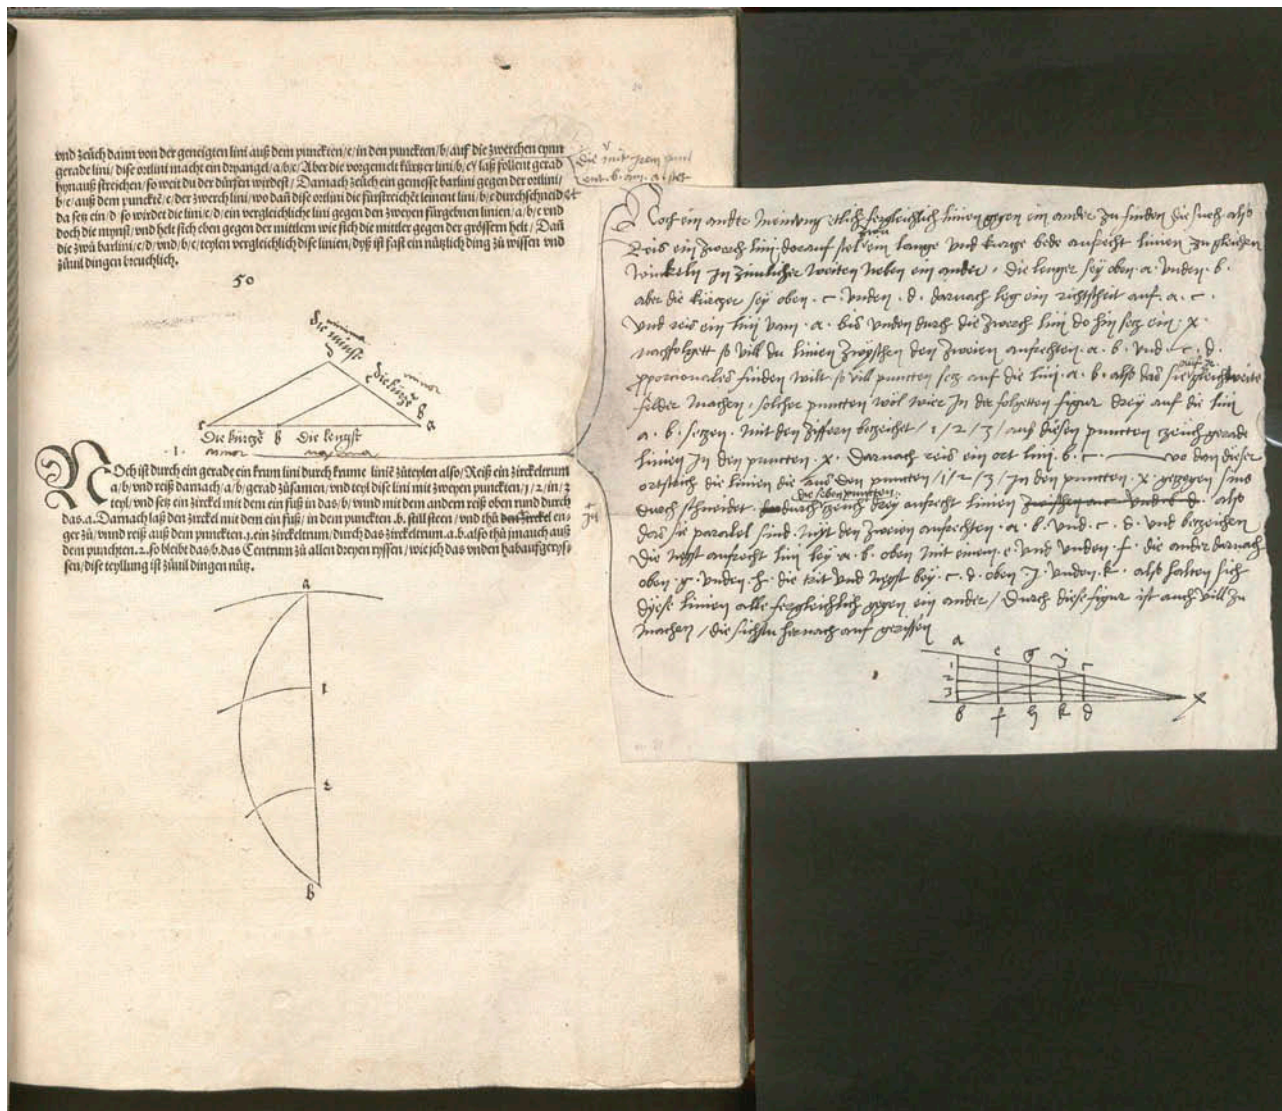 vnd zeüch dann von der geneigten lini auß dem puncktẽ/c/in den puncktẽ/b/auf die zwerchen eynn
gerade lini/dise ortlini macht ein dryangel/a/b/c/Aber die vorgemelt kürtzer lini/b/c/ laß follent gerad
hynauß streichen/so weit du der dürfen wirdest/Darnach zeüch ein gemesse barlini gegen der ortlini/
b/c/auß dem puncktẽ/e/der zwerch lini/wo dañ dise ortlini die fürstreichẽt leinent lini/b/c durchschneid et
da setz ein/d so wirdet die lini/c/d/ein vergleichliche lini gegen den zweyen fürgebnen linien/a/b/c vnd
doch die mynst/vnd helt sich eben gegen der mittlern wie sich die mittler gegen der grössern helt/Dañ
die zwü barlini/e/d/vnd/b/c/teylen vergleichlich dise linien/dyß ist fast ein nützlich ding zů wissen vnd
zůuil dingen breuchlich.
die mit jrem
50
die minst
minor
die kürtzer
c
b
a
e
Die kürtzer b Die lengst
minor
NOch ist durch ein gerade ein krum lini durch krume liniẽ zůteylen also/Reiß ein zirckeltrum
a/b/vnd reiß darnach/a/b/gerad züsamen/vnd teyl dise lini mit zweyen puncktẽ/1/2/in/3
teyl/vnd setz ein zirckel mit dem ein fuß in das/b/vnnd mit dem andern reiß oben rund durch
das.a.Darnach laß den zirckel mit dem ein fuß/in dem punckten .b. still steen/vnd thů den zirckel en-
ger zů/vnnd reiß auß dem puncktẽ.1.ein zirckeltrum/durch das zirckeltrum.a.b.also thů jmauch auß
dem punckten.2.so bleibt das/b.das Centrum zů allen dreyen ryssen/wie ich das vnden hab aufgeryss-
sen/dise teyllung ist zůuil dingen nütz.
a
1
2
b
Noch ein ander meinung etlich fergleichlich linien gegen ein ander zu finden die such also
Reis ein zwerch linj dorauf stel zwu ein lange vnd kurtze bede aufrecht linien zu gleichen
winckeln in zimlicher weiten neben ein ander. die lenger sey oben .a. vnden .b.
aber die kürtzer sey oben .c. vnden .d. darnach leg ein richtscheit auf .a. c.
vnd reis ein linj vam .a. bis vnden durch die zwerch linj do hin setz ein .x.
nachfolgett so vill du linien zwyschen den zweien aufrechten .a. b. vnd .c. d.
pporcionales finden wilt so vill puncten setz auf die linj .a. b. also das sie gleich weite
felder machen, solcher puncten wöl wier in der folgetten figur drey auf die linj
a. b. setzen. mit den ziffern betzeichet /1/2/3/ aus diesen puncten tzeuch gerade
linien in den puncten .x. Darnach reis ein ort linj .b. c. wo dan dieser
ortstrich die linien die aus den puncten /1/2/3/ in den puncten .x. getzogen sind
durch schneidet. durch die selben puncten zeuch drey aufrecht linien zwischen a b vnd c d. also
das sie paralel sind mit den zweien aufrechten .a. b. vnd .c. d. vnd betzeichen
die negst aufrecht linj bey .a. b. oben mit einem .e. vnd vnden .f. die ander darnach
oben .g. vnden .h. die trit vnd negst bey .c. d. oben .j. vnden .k. also halten sich
dyese linien alle fergleichlich gegen ein ander/ Durch diese figur ist auch vill zu
machen/ die hernach auf gerissen
a e g j c
1
2
3
b f h k d x